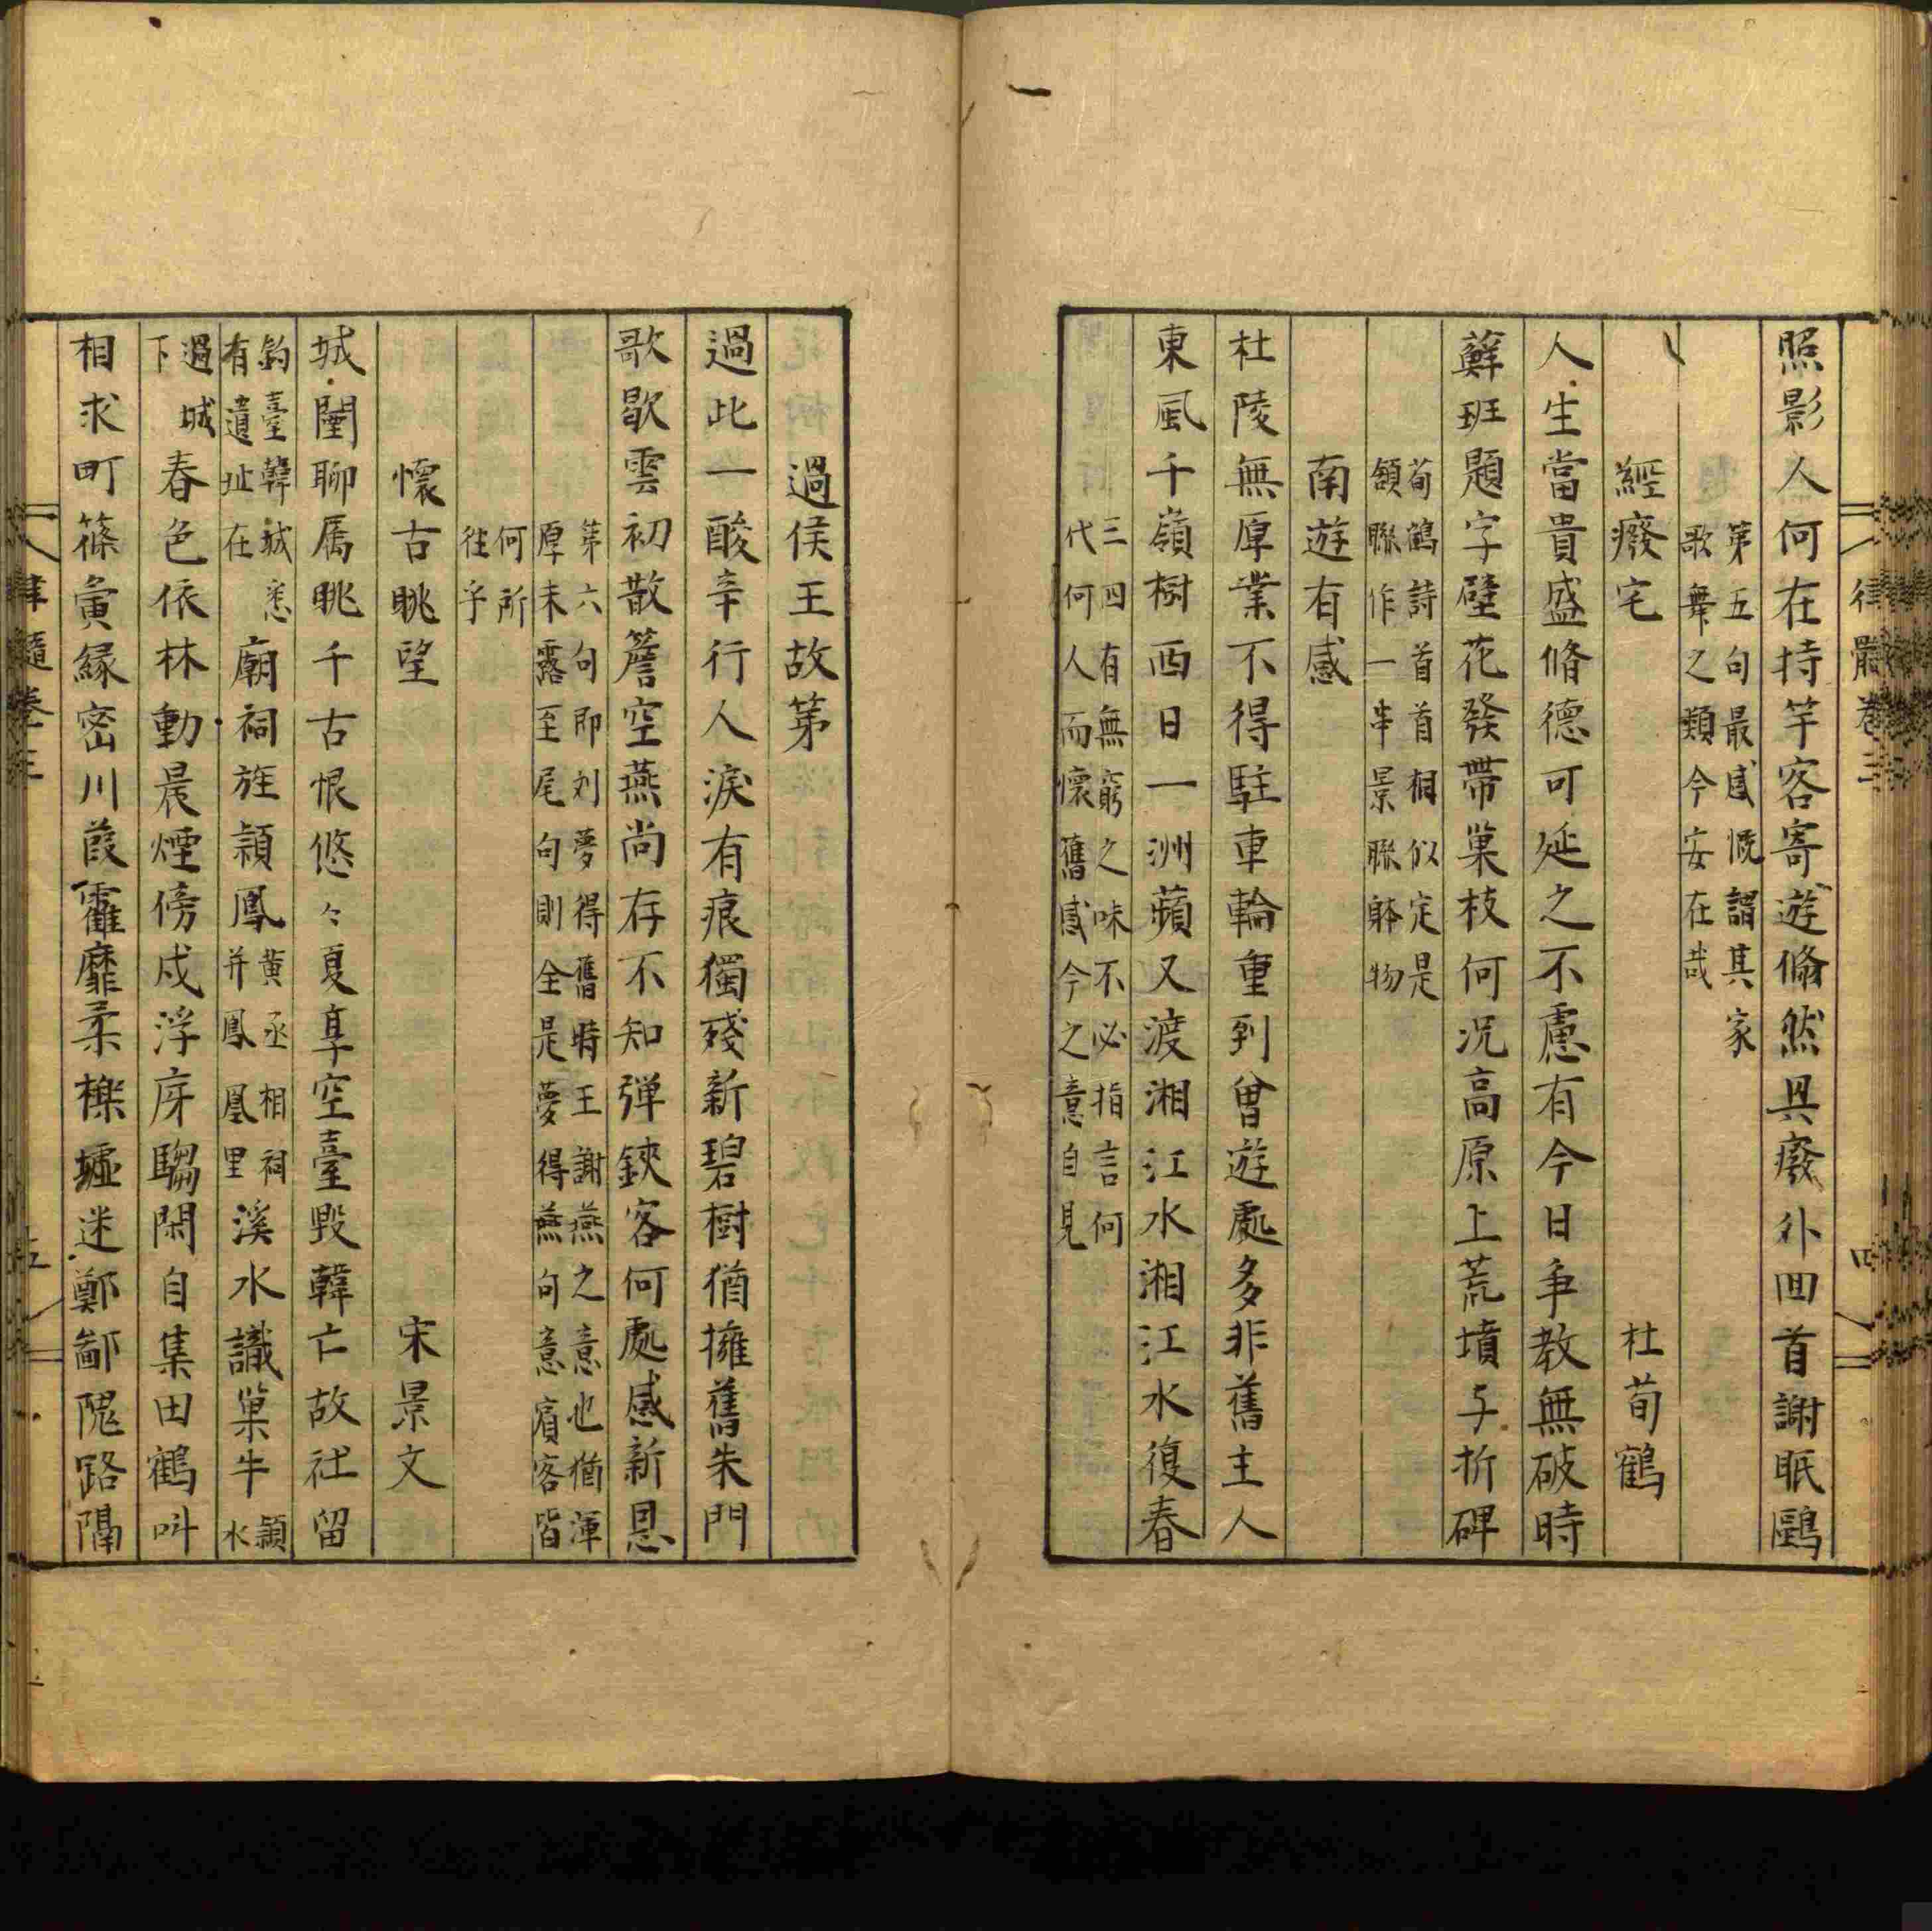 律髓卷三
四
照影人何在持竿客寄遊翛然具廢外回首謝眠鷗
第五句最感慨謂其家
歌舞之類今安在哉
經廢宅
杜荀鶴
人生當貴盛脩德可延之不慮有今日爭教無破時
蘚班題字壁花發帶巢枝何況高原上荒墳与折碑
荀鶴詩首首相似定是
頷聯作一串景聯躰物
南遊有感
杜陵無厚業不得駐車輪重到曾遊處多非舊主人
東風千嶺樹西日一洲蘋又渡湘江水湘江水復春
三四有無窮之味不必指言何
代何人而懷舊感今之意自見
過侯王故第
過此一酸辛行人淚有痕獨殘新碧樹猶擁舊朱門
歌歇雲初散簷空燕尚存不知弹鋏客何處感新恩
第六句即刘夢得舊時王謝燕之意也猶渾
厚未露至尾句則全是夢得燕句意賓客皆
何所
往乎
懷古眺望
宋景文
城闉聊属眺千古恨悠々夏享空臺毀韓亡故社留
鈞臺韓城悉
有遺址在
廟祠旌潁鳳
黃丞相祠
并鳳凰里
溪水識巢牛
潁水
過城
下
春色依林動晨煙傍戍浮庌騶閑自集田鶴叫
相求町篠夤緣密川葭靃靡柔櫟墟迷鄭鄙隗路隔
律髓卷三
五